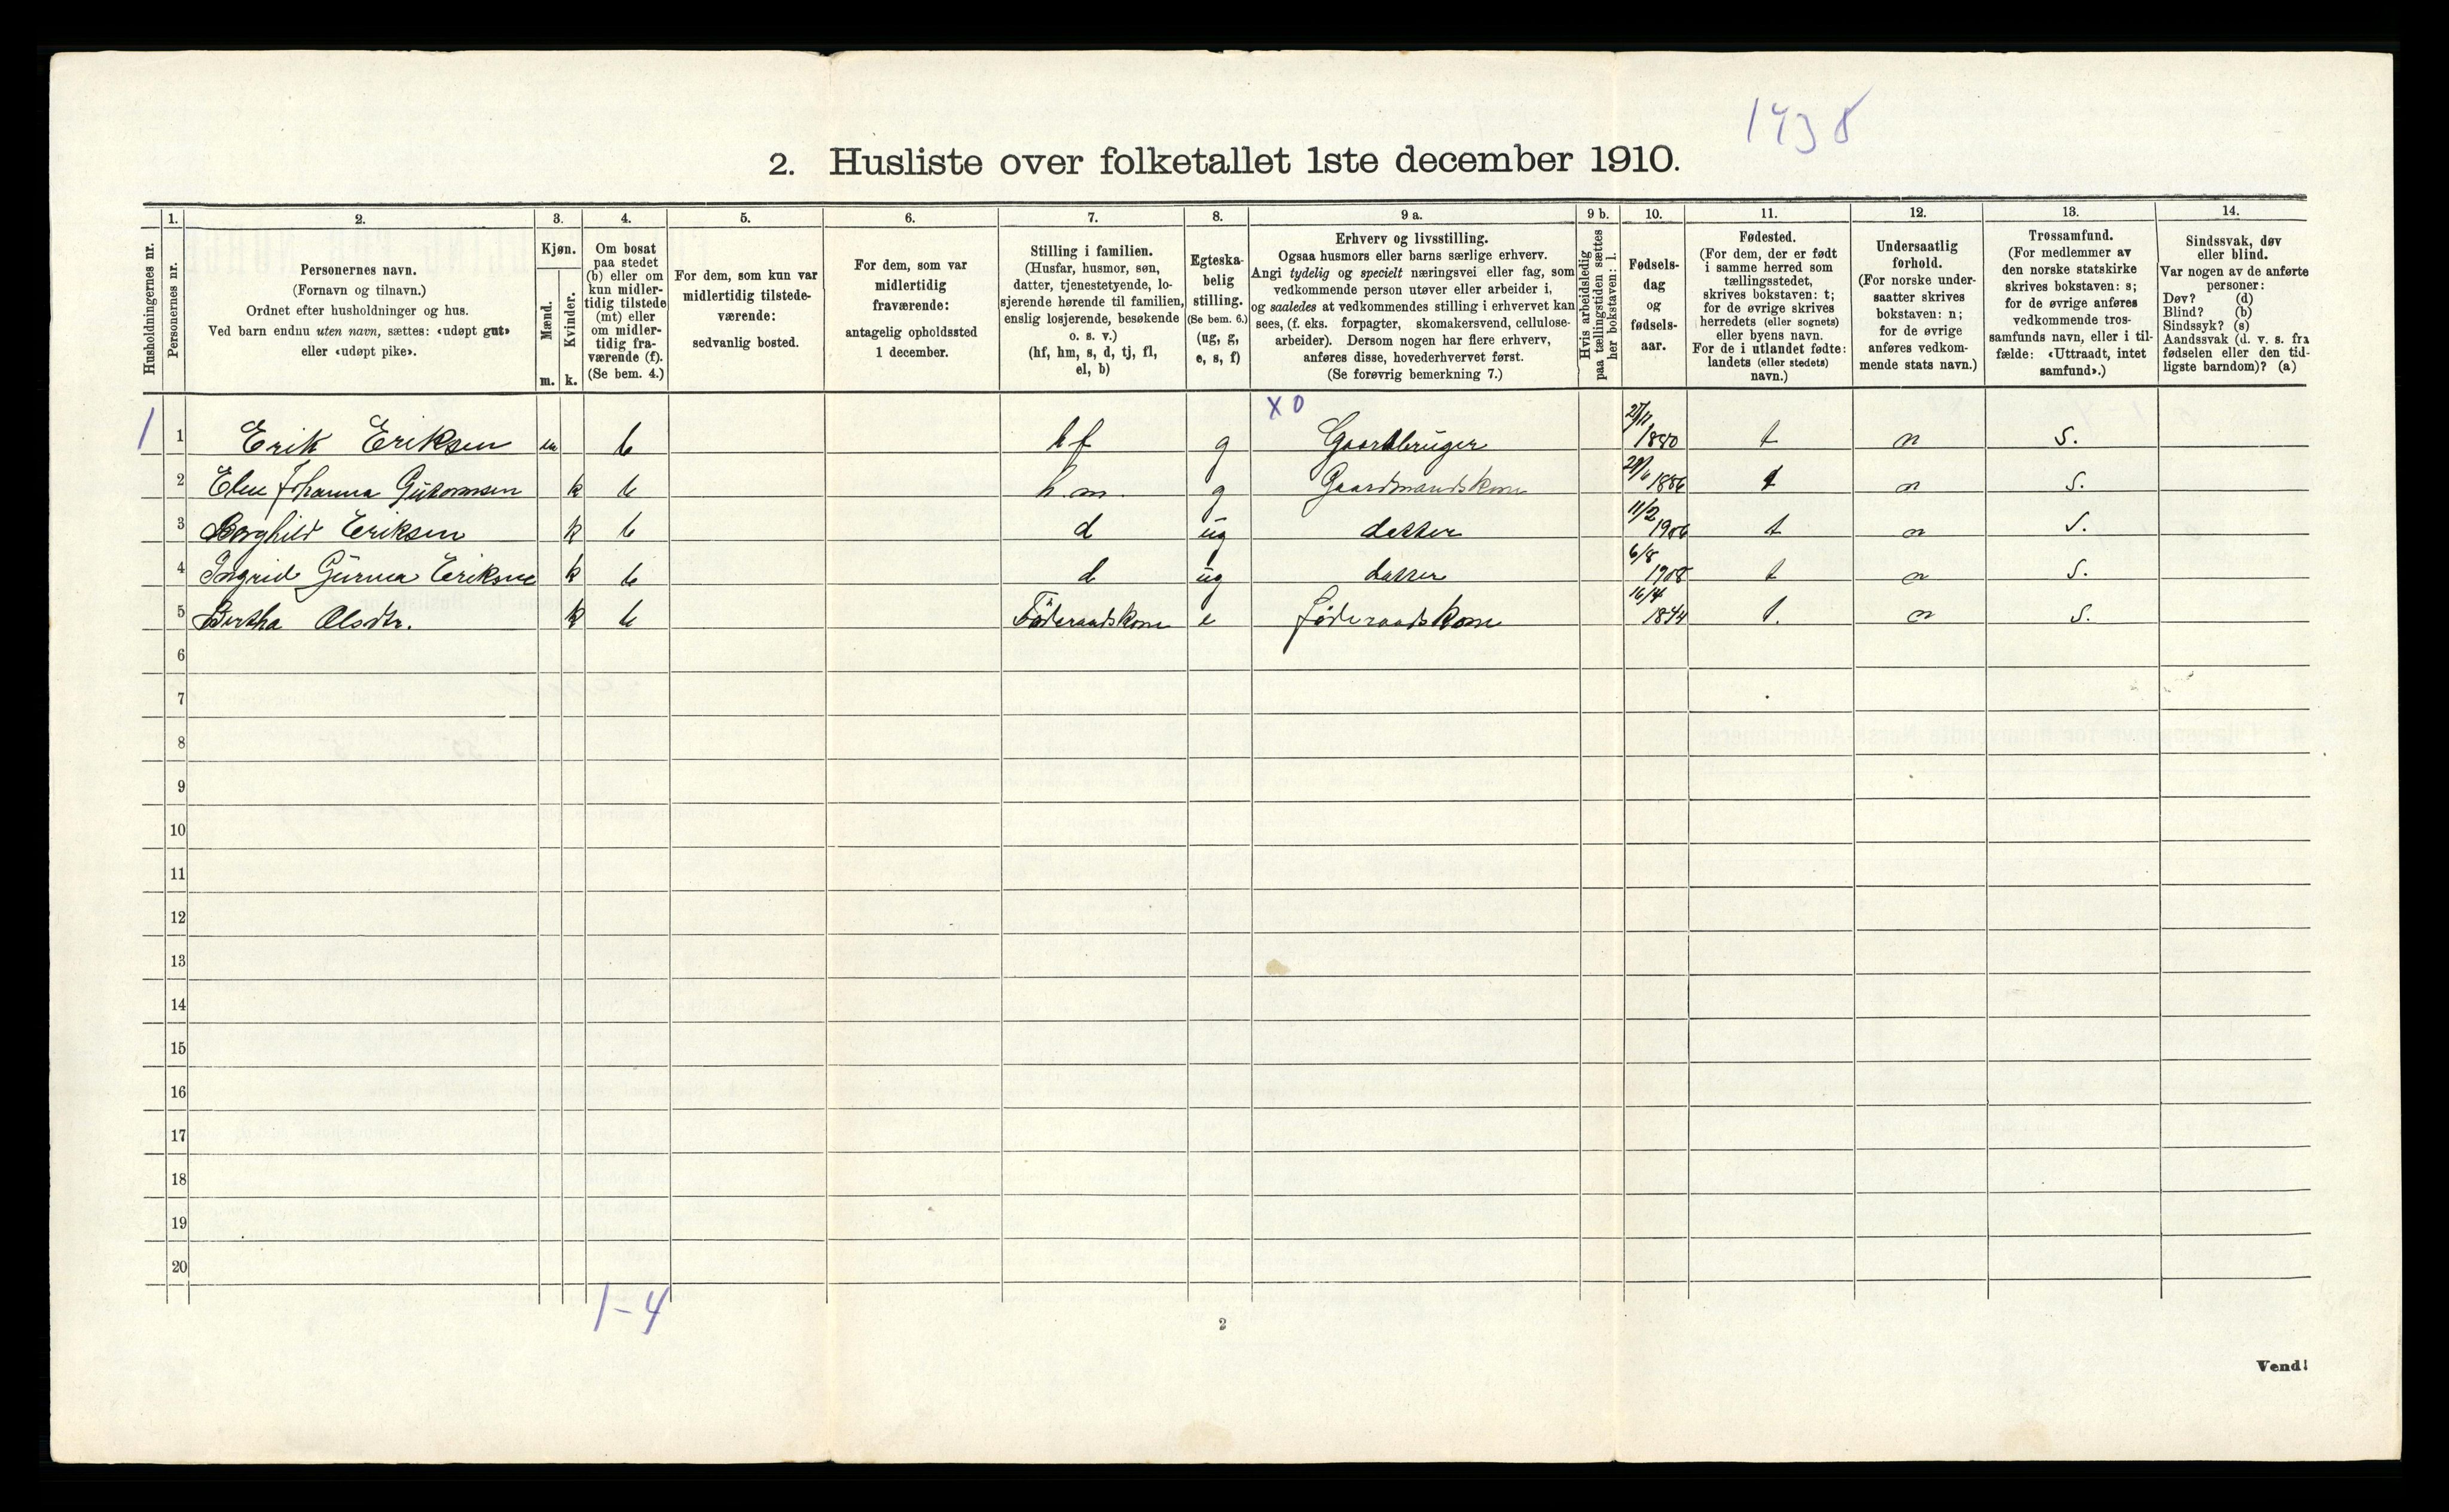 1438
2. Husliste over folketallet 1ste december 1910.
Husholdningernes nr.
1.
Personernes nr.
2.
Personernes navn.
(Fornavn og tilnavn.)
Ordnet efter husholdninger og hus.
Ved barn endnu uten navn, sættes: «udøpt gut»
eller «udøpt pike».
3.
Kjøn.
Mænd.
Kvinder.
m. k.
4.
Om bosat
paa stedet
(b) eller om
kun midler-
tidig tilstede
(mt) eller
om midler-
tidig fra-
værende (f).
(Se bem. 4.)
5.
For dem, som kun var
midlertidig tilstede-
værende:
sedvanlig bosted.
6.
For dem, som var
midlertidig
fraværende:
antagelig opholdssted
1 december.
7.
Stilling i familien.
(Husfar, husmor, søn,
datter, tjenestetyende, lo-
sjerende hørende til familien,
enslig losjerende, besøkende
o. s. v.)
(hf, hm, s, d, tj, fl,
el, b)
8.
Egteska-
belig
stilling.
(Se bem. 6.)
(ug, g,
e, s, f)
9 a.
Erhverv og livsstilling.
Ogsaa husmors eller barns særlige erhverv.
Angi tydelig og specielt næringsvei eller fag, som
vedkommende person utøver eller arbeider i,
og saaledes at vedkommendes stilling i erhvervet kan
sees, (f. eks. forpagter, skomakersvend, cellulose-
arbeider). Dersom nogen har flere erhverv,
anføres disse, hovederhvervet først.
(Se forøvrig bemerkning 7.)
9 b.
Hvis arbeidsledig
paa tællingstiden sættes
her bokstaven: l.
10.
Fødsels-
dag
og
fødsels-
aar.
11.
Fødested.
(For dem, der er født
i samme herred som
tællingsstedet,
skrives bokstaven: t;
for de øvrige skrives
herredets (eller sognets)
eller byens navn.
For de i utlandet fødte:
landets (eller stedets)
navn.)
12.
Undersaatlig
forhold.
(For norske under-
saatter skrives
bokstaven: n;
for de øvrige
anføres vedkom-
mende stats navn.)
13.
Trossamfund.
(For medlemmer av
den norske statskirke
skrives bokstaven: s;
for de øvrige anføres
vedkommende tros-
samfunds navn, eller i til-
fælde: «Uttraadt, intet
samfund».)
14.
Sindssvak, døv
eller blind.
Var nogen av de anførte
personer:
Døv? (d)
Blind? (b)
Sindssyk? (s)
Aandssvak (d. v. s. fra
fødselen eller den tid-
ligste barndom)? (a)
x 0
1 1 Erik Eriksen m b hf g Gaardbruger 1880 t n s.
2 Johanna k b h.m. g Gaardmandskone 1886 t n s.
3 Borghild Eriksen k b d ug datter 11/2 1906 t n s.
4 Ingrid Eriksen k b d ug datter 6/8 1908 t n s.
5 Bertha Olsdtr. k b Föderaadskone e föderaadskone 16/4 1844 t. n s.
6
7
8
9
10
11
12
13
14
15
16
17
18
19
20
1-4
2
Vend!